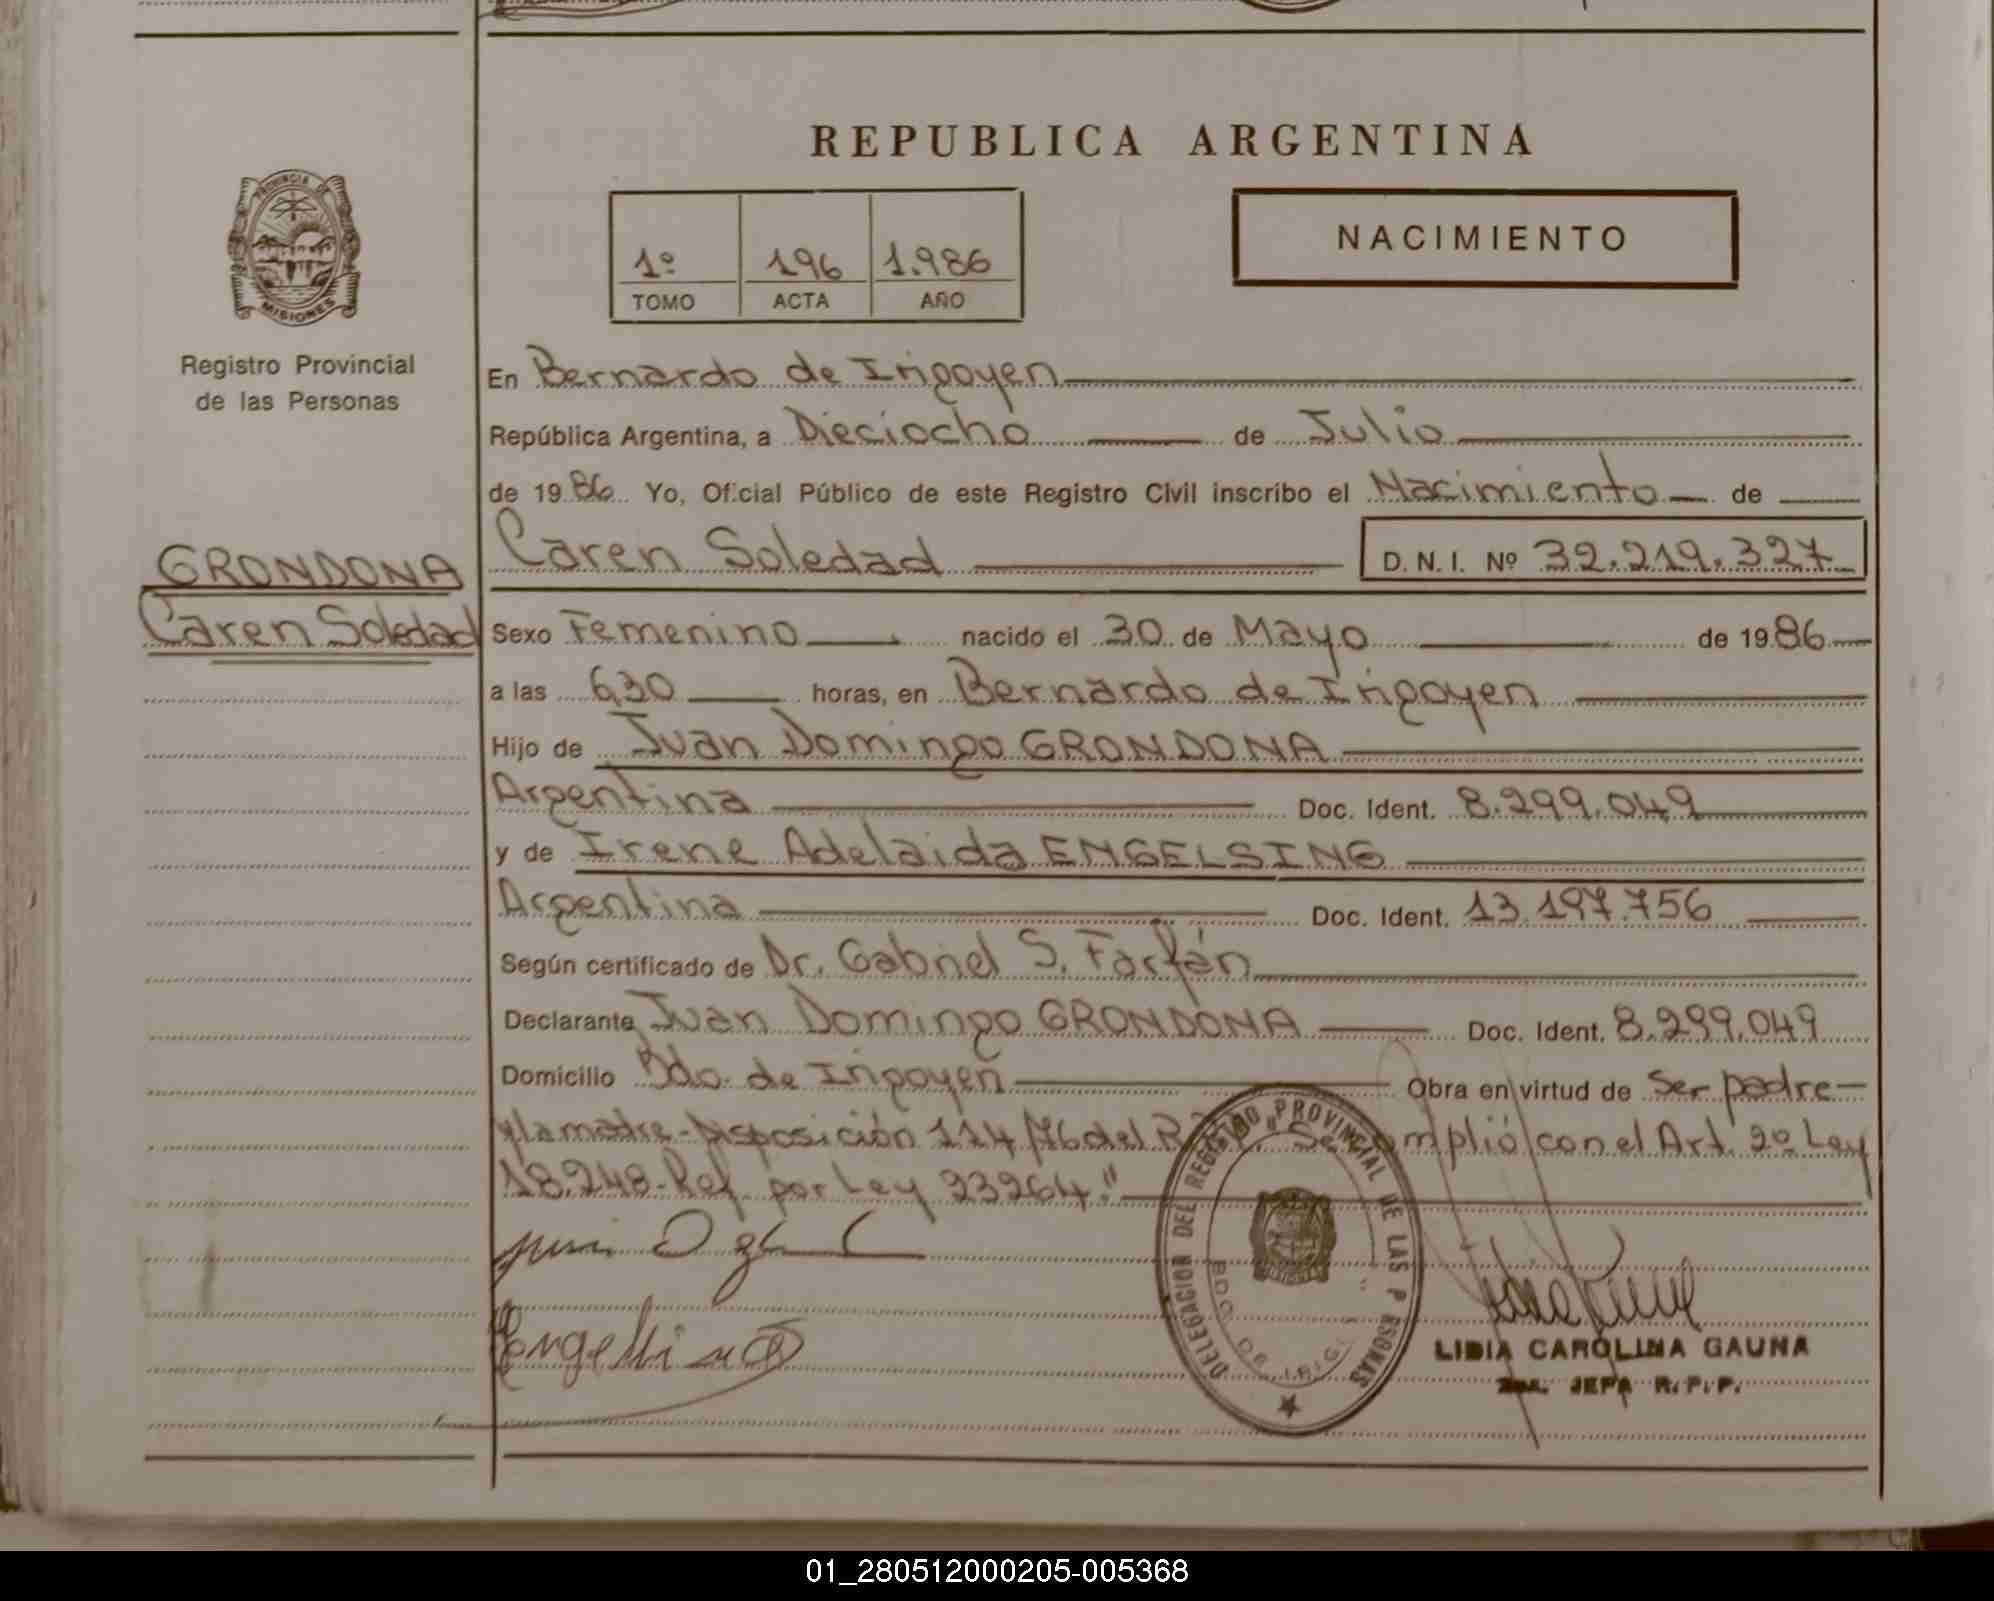 REPUBLICA ARGENTINA
PROVINCIA DE
MISIONES
Registro Provincial
de las Personas
1º 196 1.986
TOMO ACTA AÑO
NACIMIENTO
En Bernardo de Irigoyen
República Argentina, a Dieciocho de Julio
de 19 86 Yo, Oficial Público de este Registro Civil inscribo el Nacimiento de
GRONDONA
Caren Soledad
Caren Soledad D. N. I. Nº 32.219.327
Sexo Femenino nacido el 30 de Mayo de 19 86
a las 6,30 horas, en Bernardo de Irigoyen
Hijo de Juan Domingo GRONDONA
Argentina Doc. Ident. 8.299.049
y de Irene Adelaida ENGELSING
Argentina Doc. Ident. 13.197.756
Según certificado de Dr. Gabriel S. Farfán
Declarante Juan Domingo GRONDONA Doc. Ident. 8.299.049
Domicilio Bdo. de Irigoyen Obra en virtud de Ser padre
y la madre - Disposición 114/76 del "Se cumplió con el Art. 2º Ley
18.248 - Ref. por Ley 23264."
DELEGACION DEL REGISTRO PROVINCIAL DE LAS PERSONAS
BDO. DE IRIG.
Engelsing
LIDIA CAROLINA GAUNA
JEFA R.P.P.
01_280512000205-005368